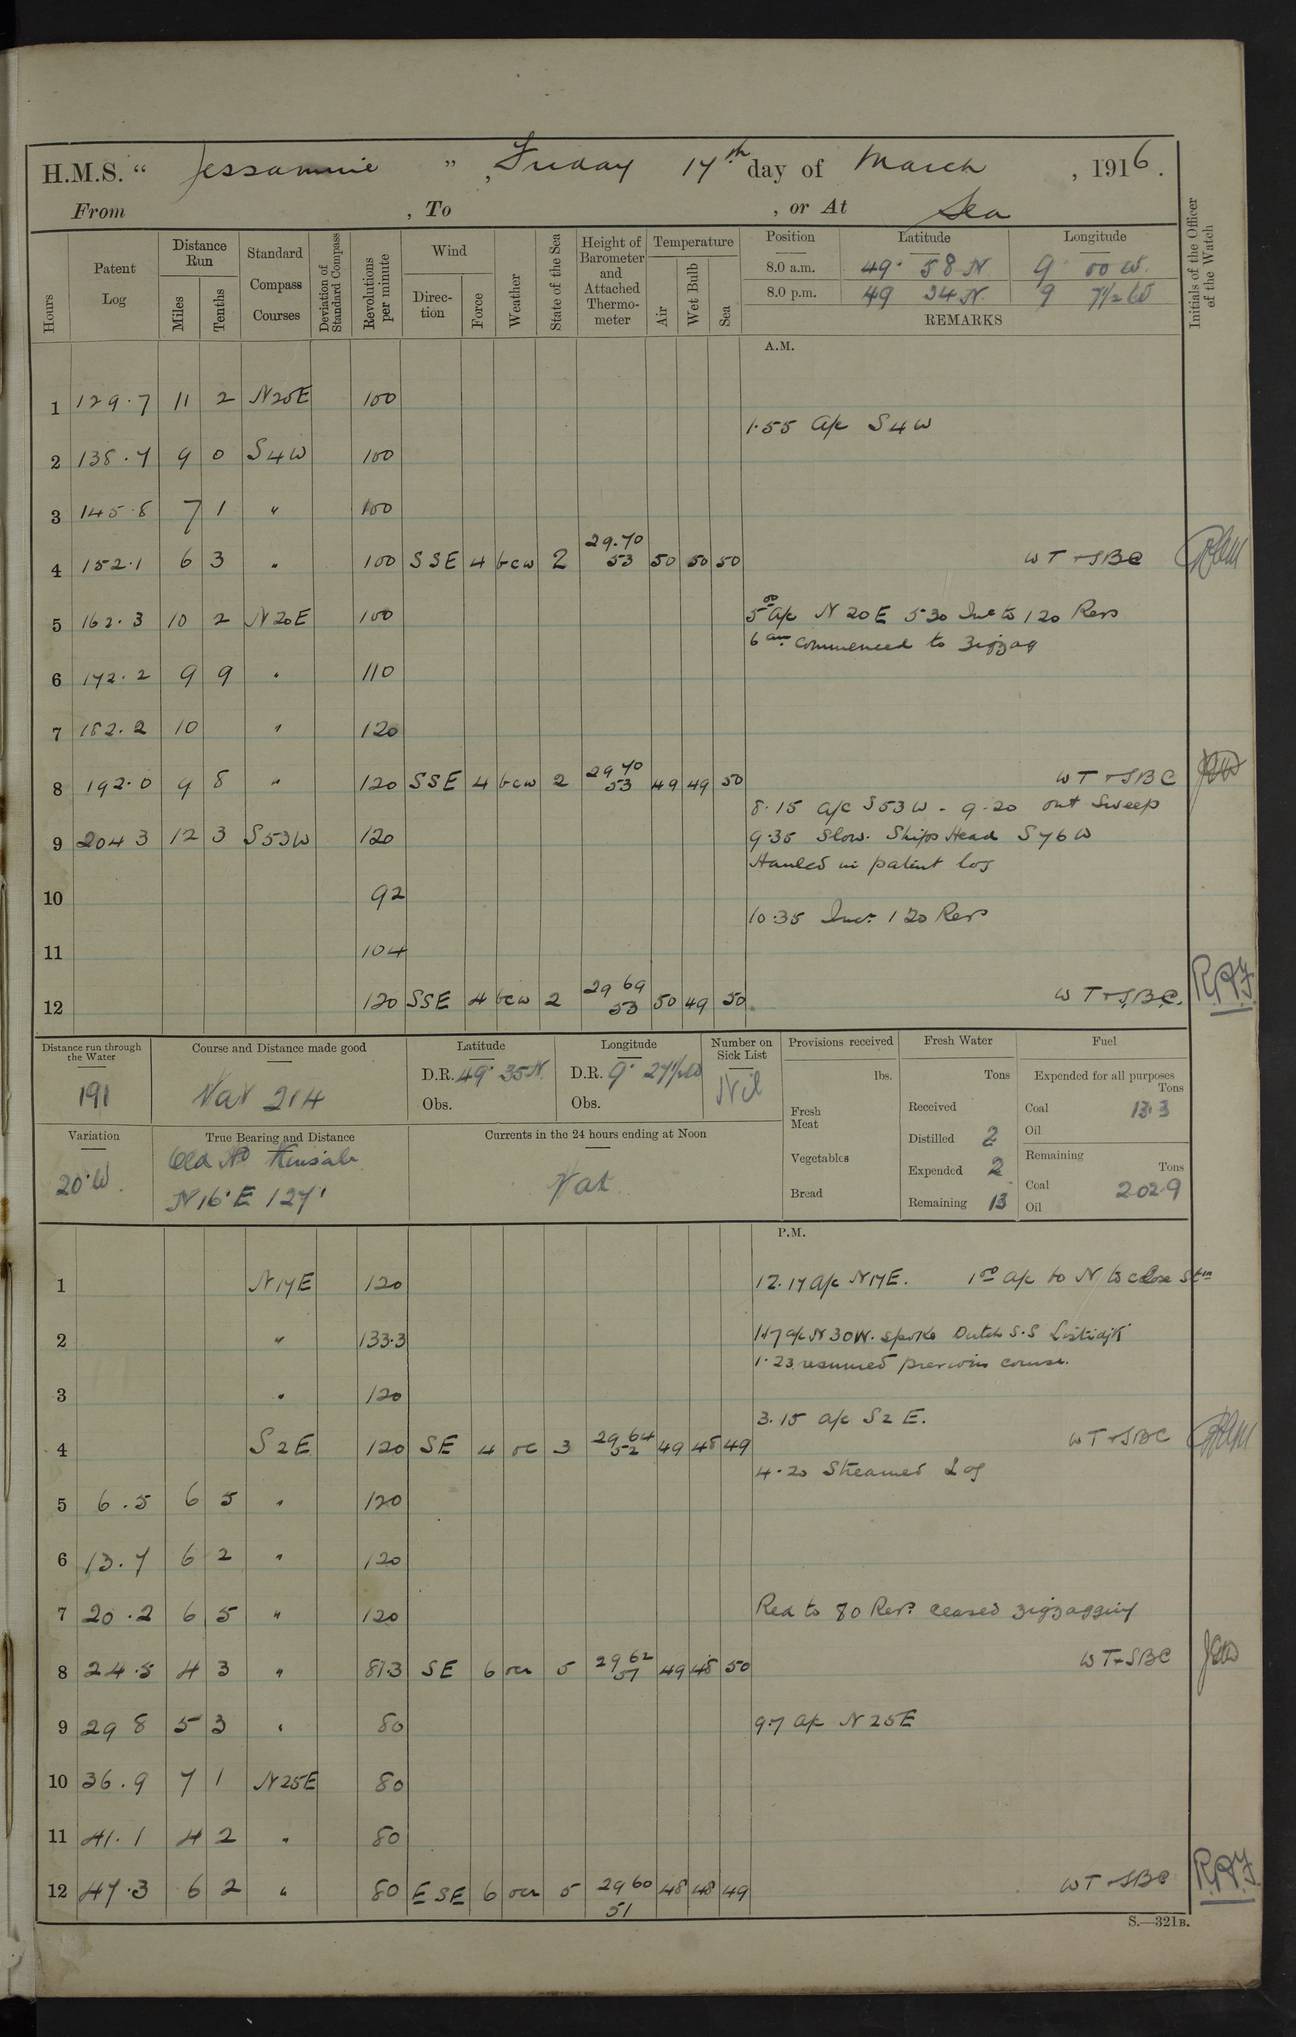 H.M.S. " Jessamine ", Friday 17th day of March, 1916.
From , To , or At Sea
Hours
Patent Log
Distance Run
Miles
Tenths
Standard Compass Courses
Deviation of Standard Compass
Revolutions per minute
Wind
Direction
Force
Weather
State of the Sea
Height of Barometer and Attached Thermometer
Temperature
Air
Wet Bulb
Sea
Position Latitude Longitude
8.0 a.m. 49° 58 N 9° 00 W.
8.0 p.m. 49 34 N. 9 7½ W
REMARKS
Initials of the Officer of the Watch
A.M.
1 129.7 11 2 N20E 100
1.55 A/c S4W
2 138.7 9 0 S4W 100
3 145.8 7 1 " 100
4 152.1 6 3 " 100 SSE 4 bcw 2 29.70 53 50 50 50 WT + SBC
5 162.3 10 2 N20E 100
5.00 A/c N 20 E 5.30 Inc to 120 Revs
6 am commenced to zigzag
6 172.2 9 9 " 110
7 182.2 10 " 120
8 192.0 9 8 " 120 SSE 4 bcw 2 29 70 53 49 49 50 WT + SBC
8.15 A/c S53W - 9.20 out Sweep
9 204 3 12 3 S53W 120
9.35 Slow. Ships Head S76W
Hauled in patent log
10 92
10.35 Incr. 120 Revs
11 104
12 120 SSE 4 bcw 2 29 69 53 50 49 50 WT + SBC. R.A.F.
Distance run through the Water
191
Course and Distance made good
Var 214
Latitude
D.R. 49° 35 N.
Obs.
Longitude
D.R. 9° 27½ W
Obs.
Number on Sick List
Nil
Provisions received
lbs.
Fresh Meat
Vegetables
Bread
Fresh Water
Tons
Received
Distilled 2
Expended 2
Remaining 13
Fuel
Expended for all purposes
Tons
Coal 13.3
Oil
Remaining
Tons
Coal 202.9
Oil
Variation
20° W.
True Bearing and Distance
Old Hd Kinsale
N16°E 127'
Currents in the 24 hours ending at Noon
Var
P.M.
1 N17E 120
12.17 A/c N17E. 1.00 A/c to N to close Stm
2 " 133.3
1.17 A/c N 30W. spoke Dutch S.S
1.23 resumed previous course.
3 " 120
3.15 A/c S2E.
4 S2E 120 SE 4 oc 3 29 64 52 49 48 49 WT + SBC
4.20 Streamed Log
5 6.5 6 5 " 120
6 13.7 6 2 " 120
7 20.2 6 5 " 120
Red to 80 Revs. ceased zigzagging
8 24.5 4 3 " 81.3 SE 6 ocr 5 29 62 51 49 48 50 WT + SBC
9 29 8 5 3 " 80
9.7 A/c N25E
10 36.9 7 1 N25E 80
11 41.1 4 2 " 80
12 47.3 6 2 " 80 ESE 6 ocr 5 29 60 51 48 48 49 WT + SBC R.A.F.
S.—321B.